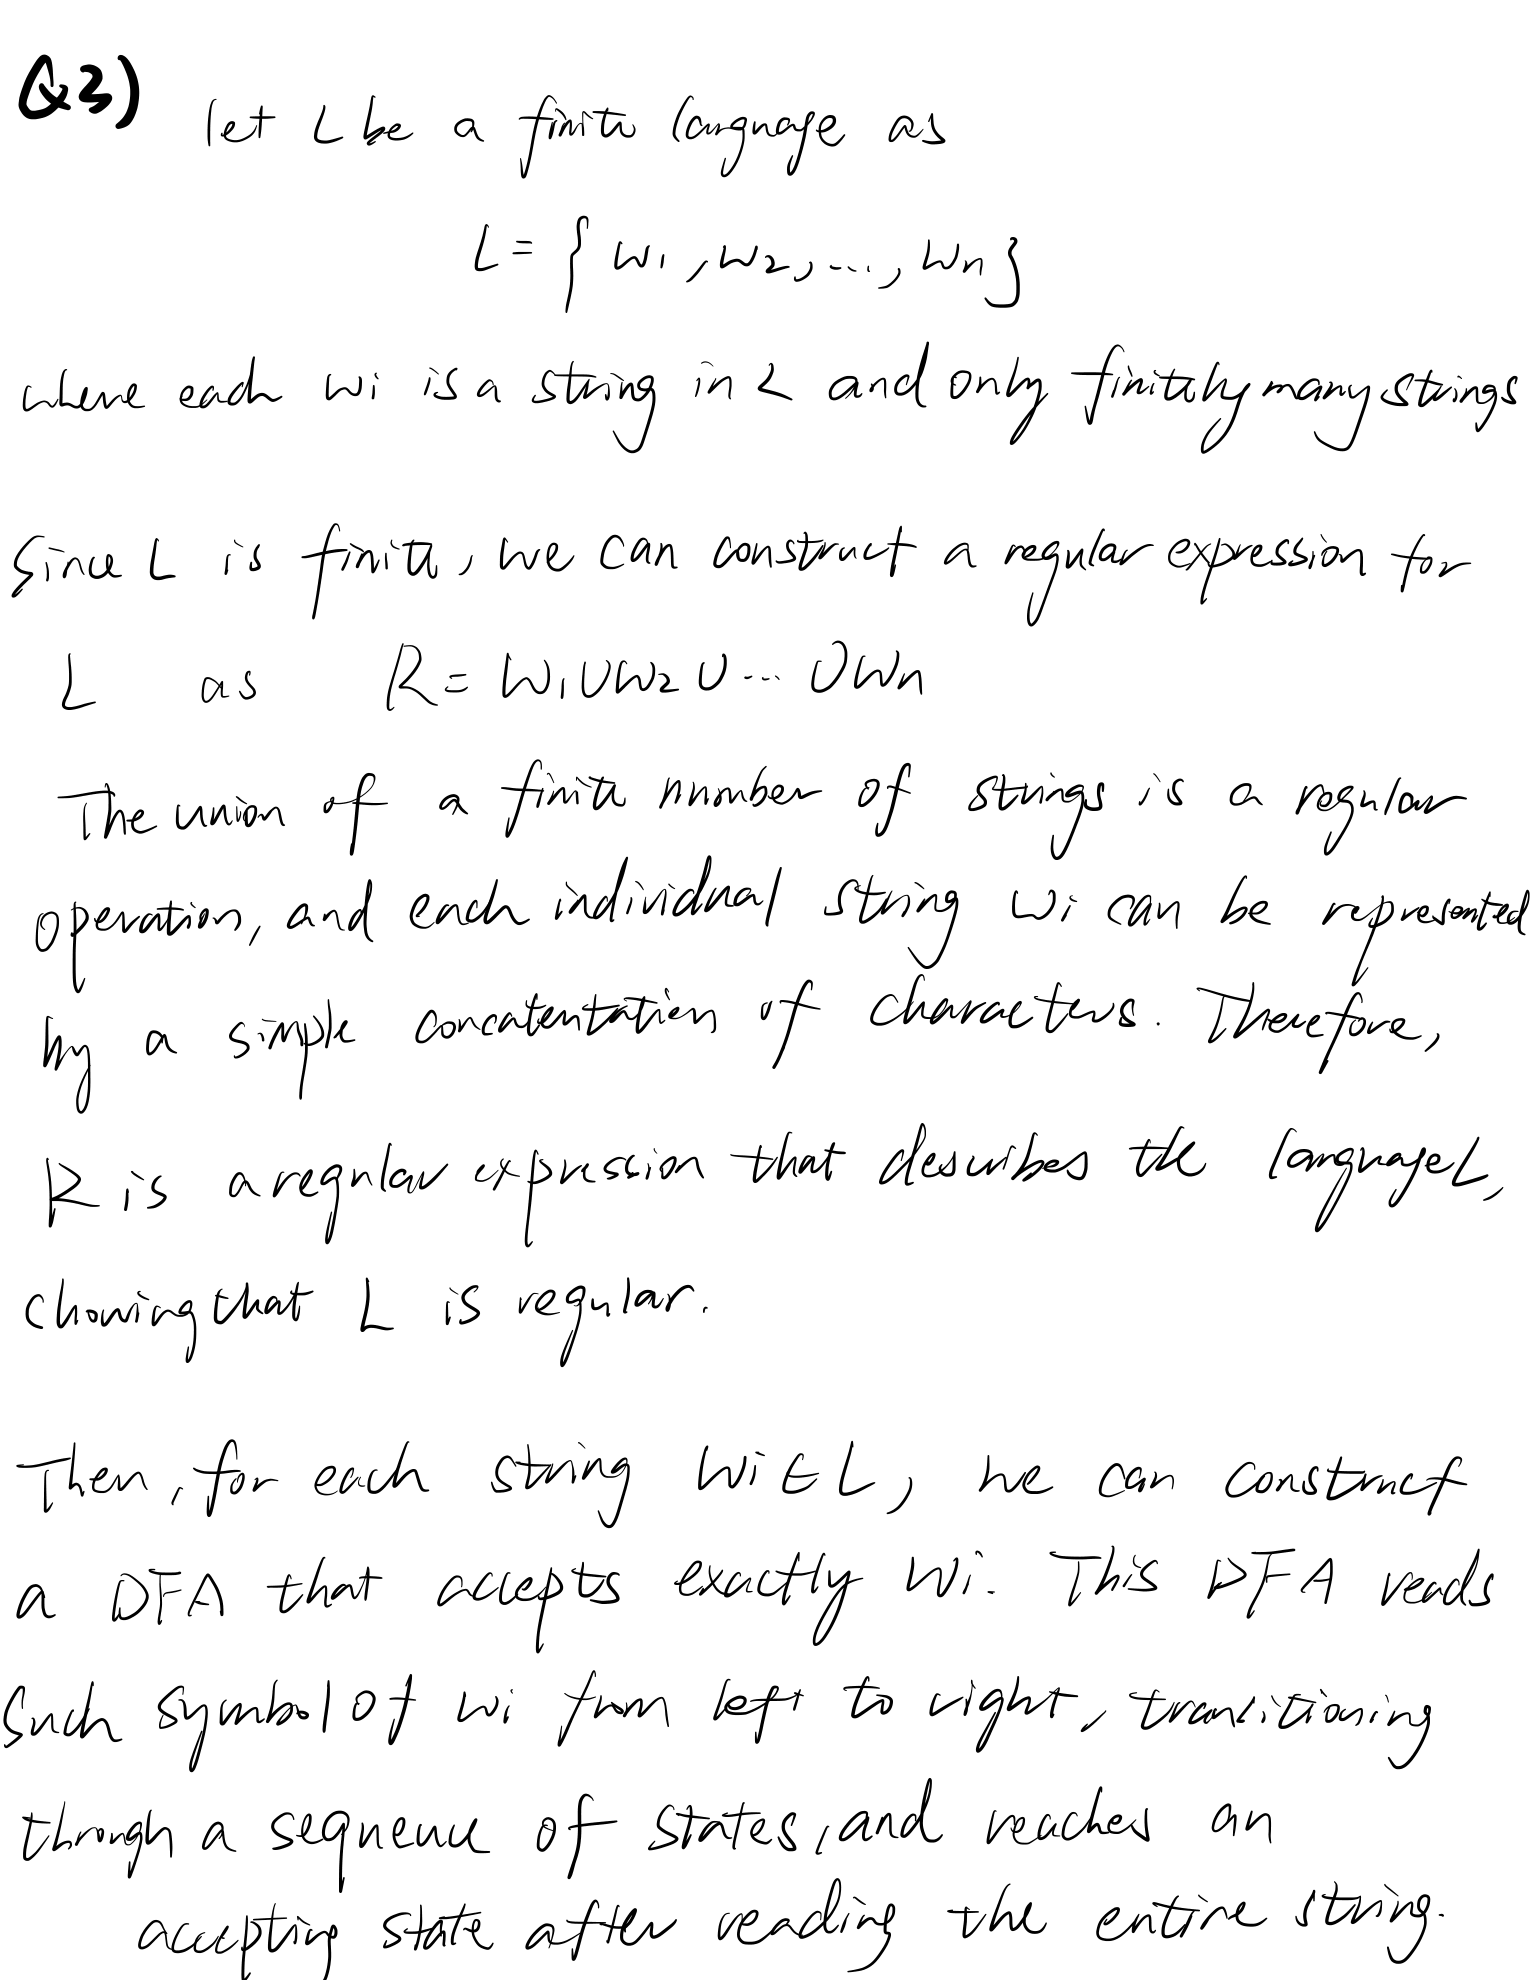 Q3)
let L be a finite language as
L = { w1, w2, ..., wn }
where each wi is a string in L and only finitely many strings
Since L is finite, we can construct a regular expression for
L as R = W1 ∪ W2 ∪ ... ∪ Wn
The union of a finite number of strings is a regular
operation, and each individual string wi can be represented
by a simple concatentation of characters. Therefore,
R is a regular expression that describes the language L,
showing that L is regular.
Then, for each string wi ∈ L, we can construct
a DFA that accepts exactly wi. This DFA reads
such symbol of wi from left to right, transitioning
through a sequence of states, and reaches an
accepting state after reading the entire string.